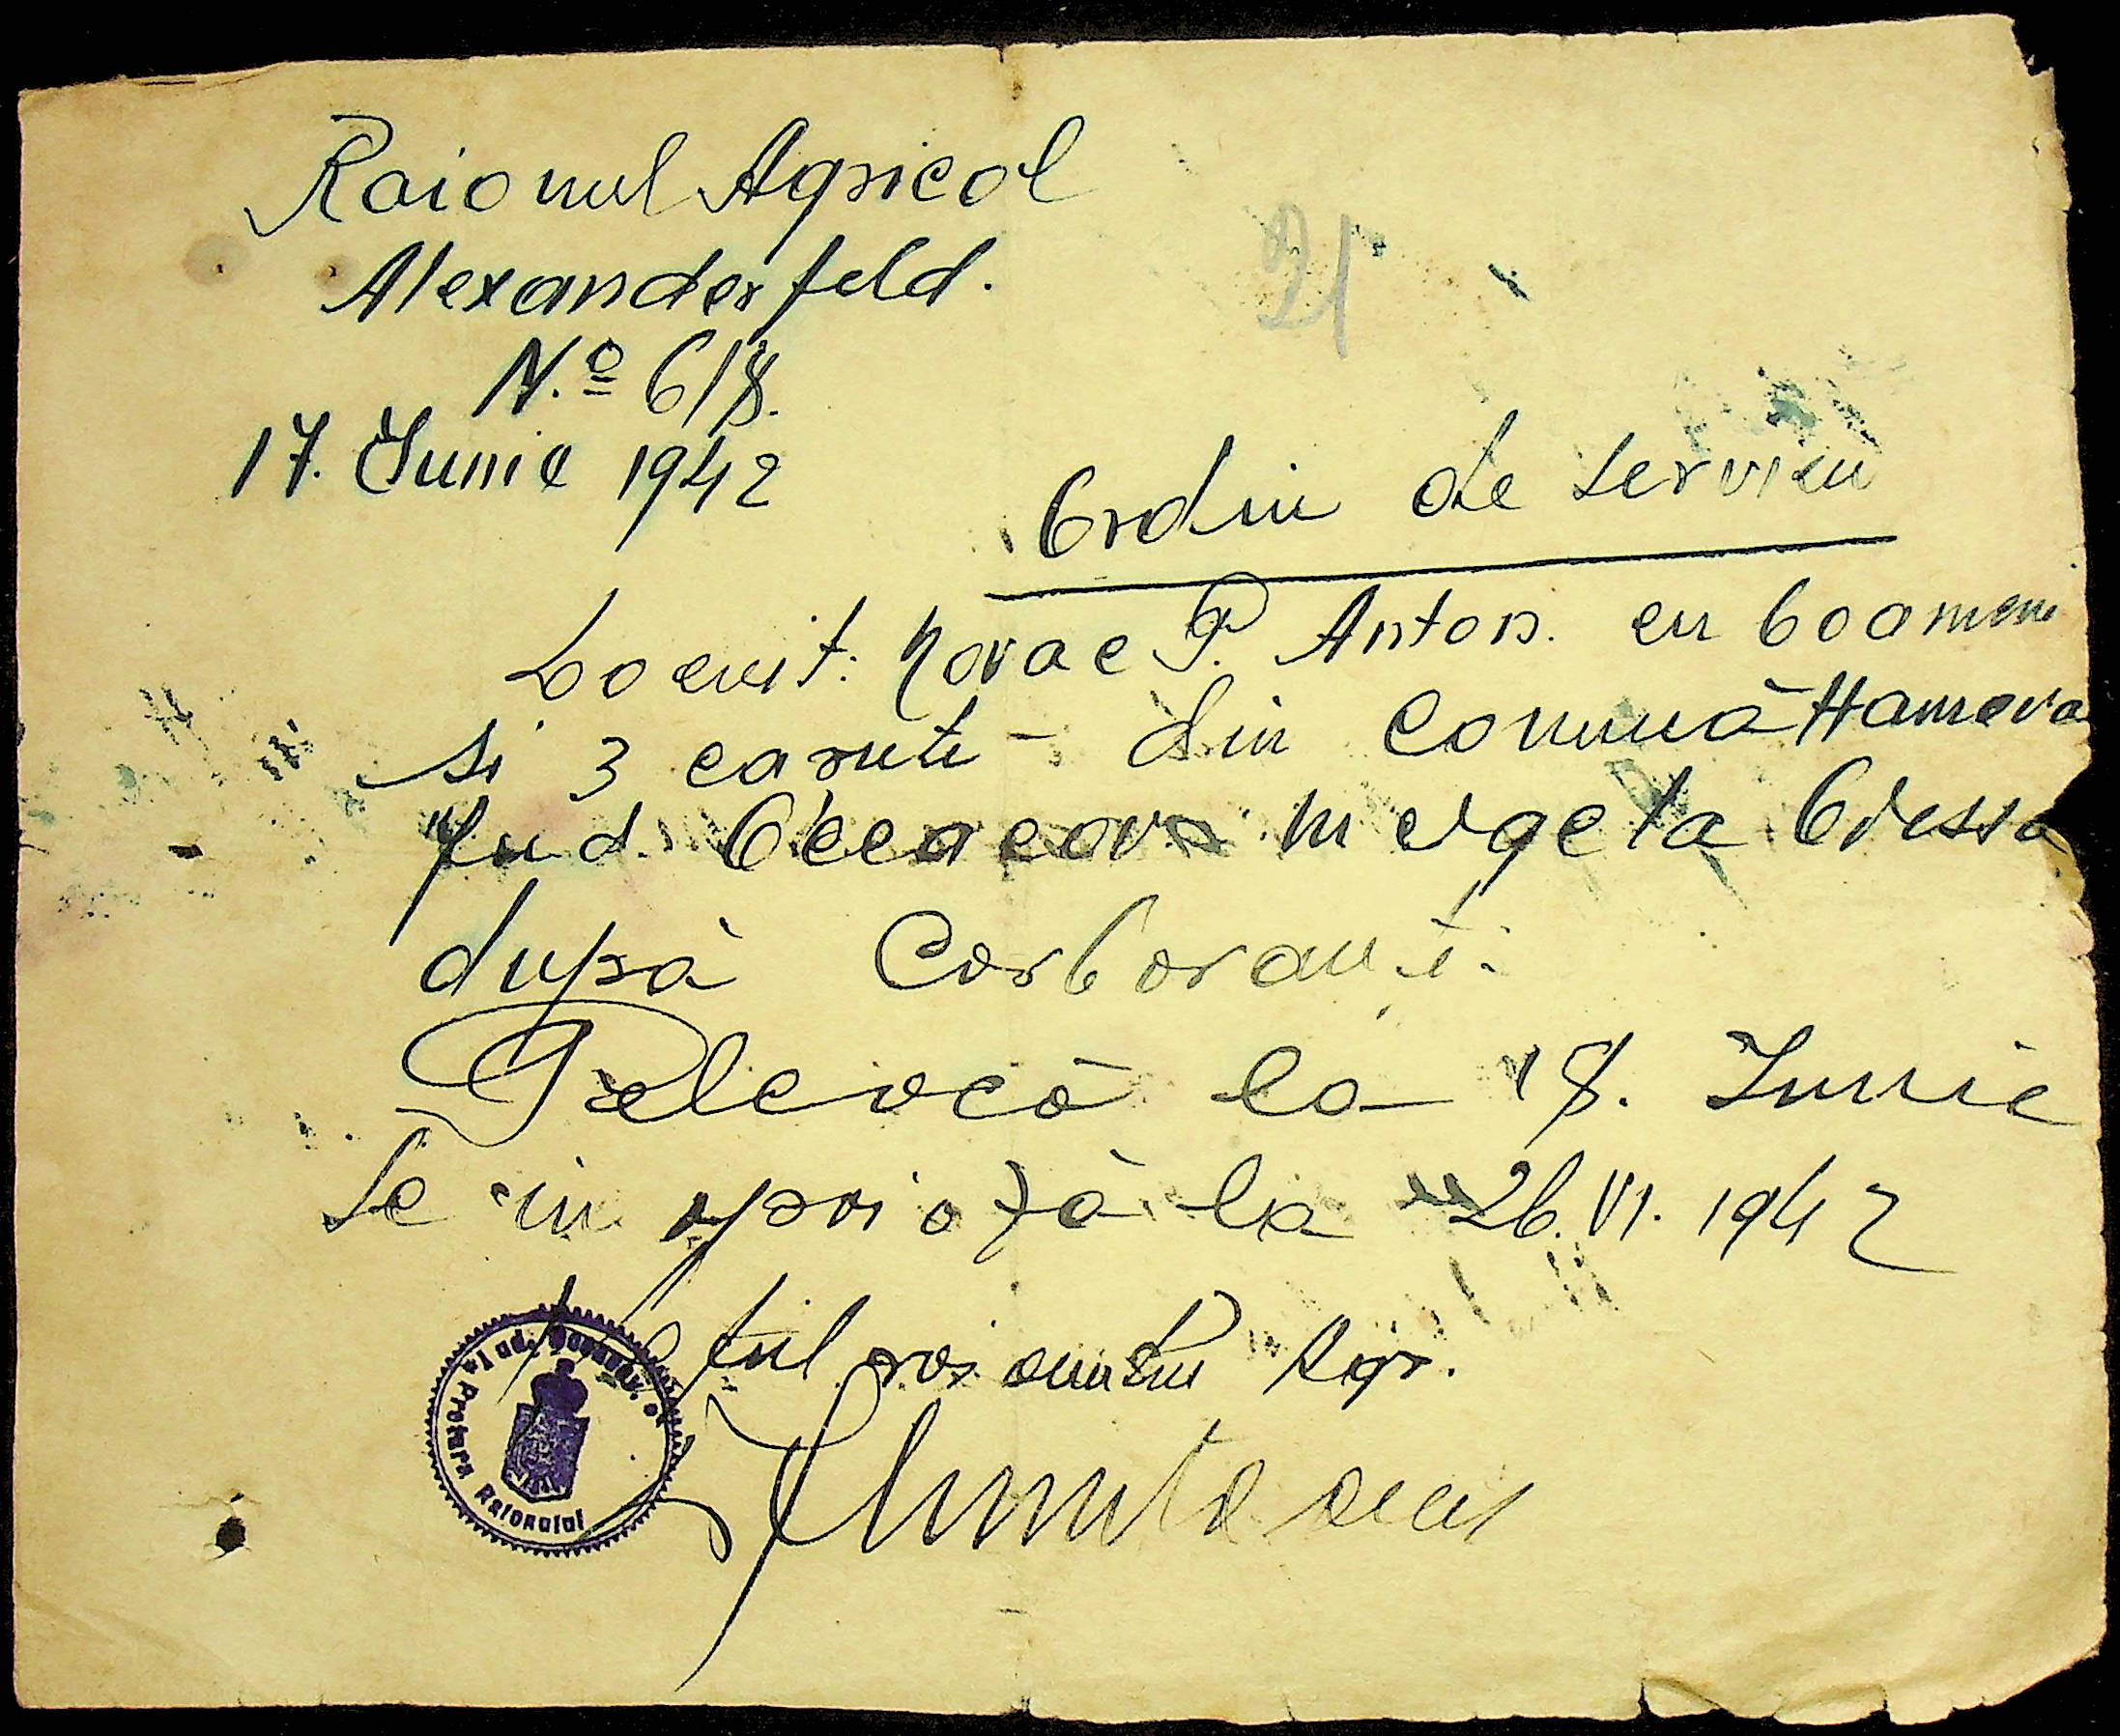 Raionul Agricol
Alexanderfeld.
N.º 618.
17. Iunie 1942
21
Ordin de serviciu
Locuit: Novac P. Anton. cu 6 oameni
si 3 carute - din comună
Jud. Oceacov merge la Odessa
după Corboranți.
Pleleacă la 18. Iunie
Se in apoiază la 26. VI. 1942
Agr.
Pretura Raionului